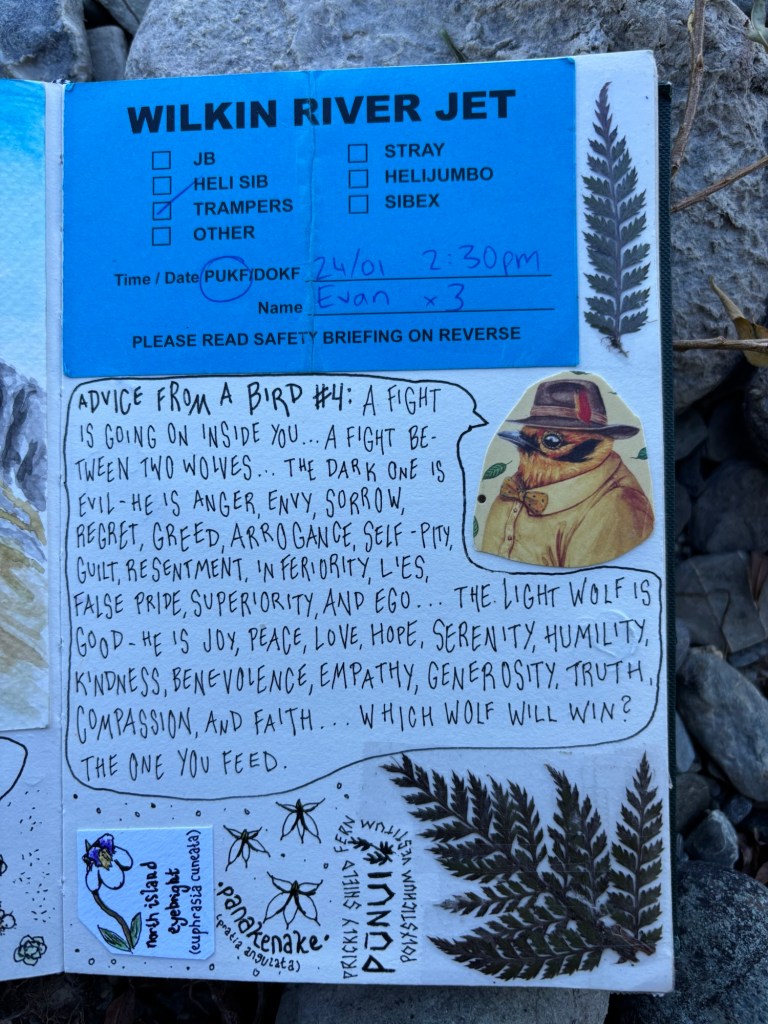 WILKIN RIVER JET
JB
HELI SIB
TRAMPERS
OTHER
STRAY
HELIJUMBO
SIBEX
Time / Date PUKF/DOKF 24/01 2:30pm
Name Evan x3
PLEASE READ SAFETY BRIEFING ON REVERSE
ADVICE FROM A BIRD #4: A FIGHT
IS GOING ON INSIDE YOU... A FIGHT BE-
TWEEN TWO WOLVES... THE DARK ONE IS
EVIL - HE IS ANGER, ENVY, SORROW,
REGRET, GREED, ARROGANCE, SELF-PITY,
GUILT, RESENTMENT, INFERIORITY, LIES,
FALSE PRIDE, SUPERIORITY, AND EGO... THE LIGHT WOLF IS
GOOD - HE IS JOY, PEACE, LOVE, HOPE, SERENITY, HUMILITY,
KINDNESS, BENEVOLENCE, EMPATHY, GENEROSITY, TRUTH,
COMPASSION, AND FAITH... WHICH WOLF WILL WIN?
THE ONE YOU FEED.
north island
eyebright
(euphrasia cuneata)
·panakenake·
(pratia angulata)
PRICKLY SHIELD FERN
PŪNUI
POLYSTICHUM VESTITUM